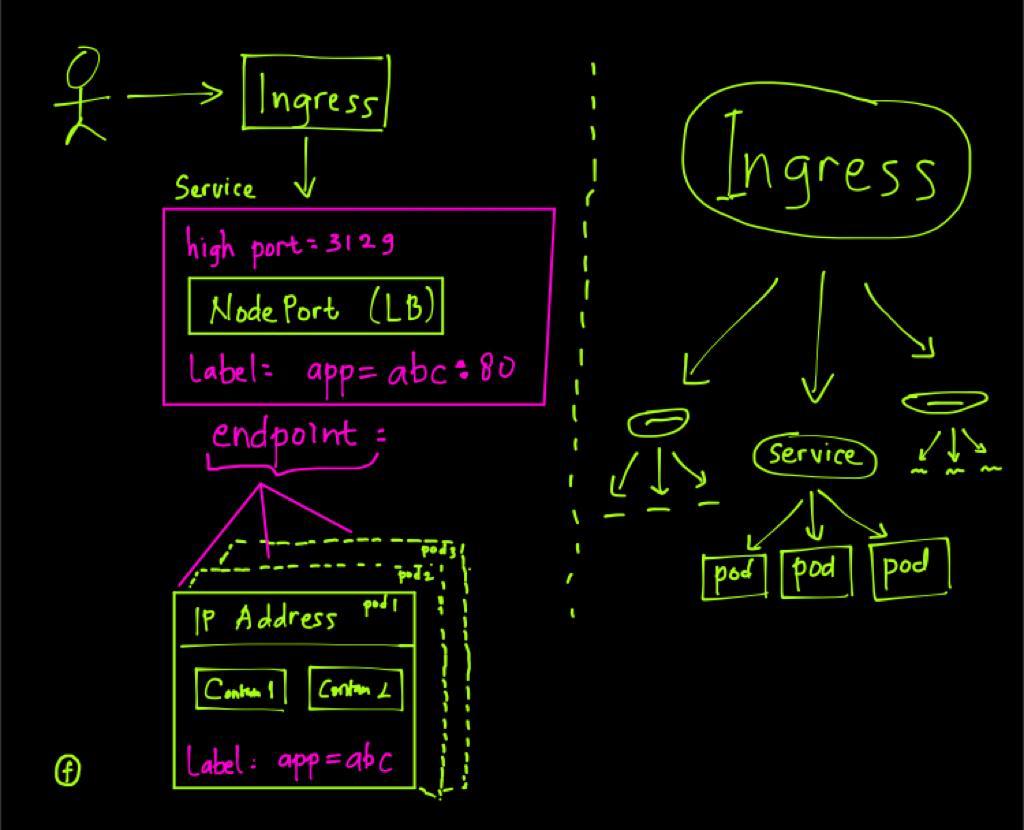 Ingress
Service
high port = 3129
NodePort (LB)
Label: app = abc : 80
endpoint :
pod3
pod2
pod1
IP Address
Label: app = abc
f
Ingress
Service
pod
pod
pod